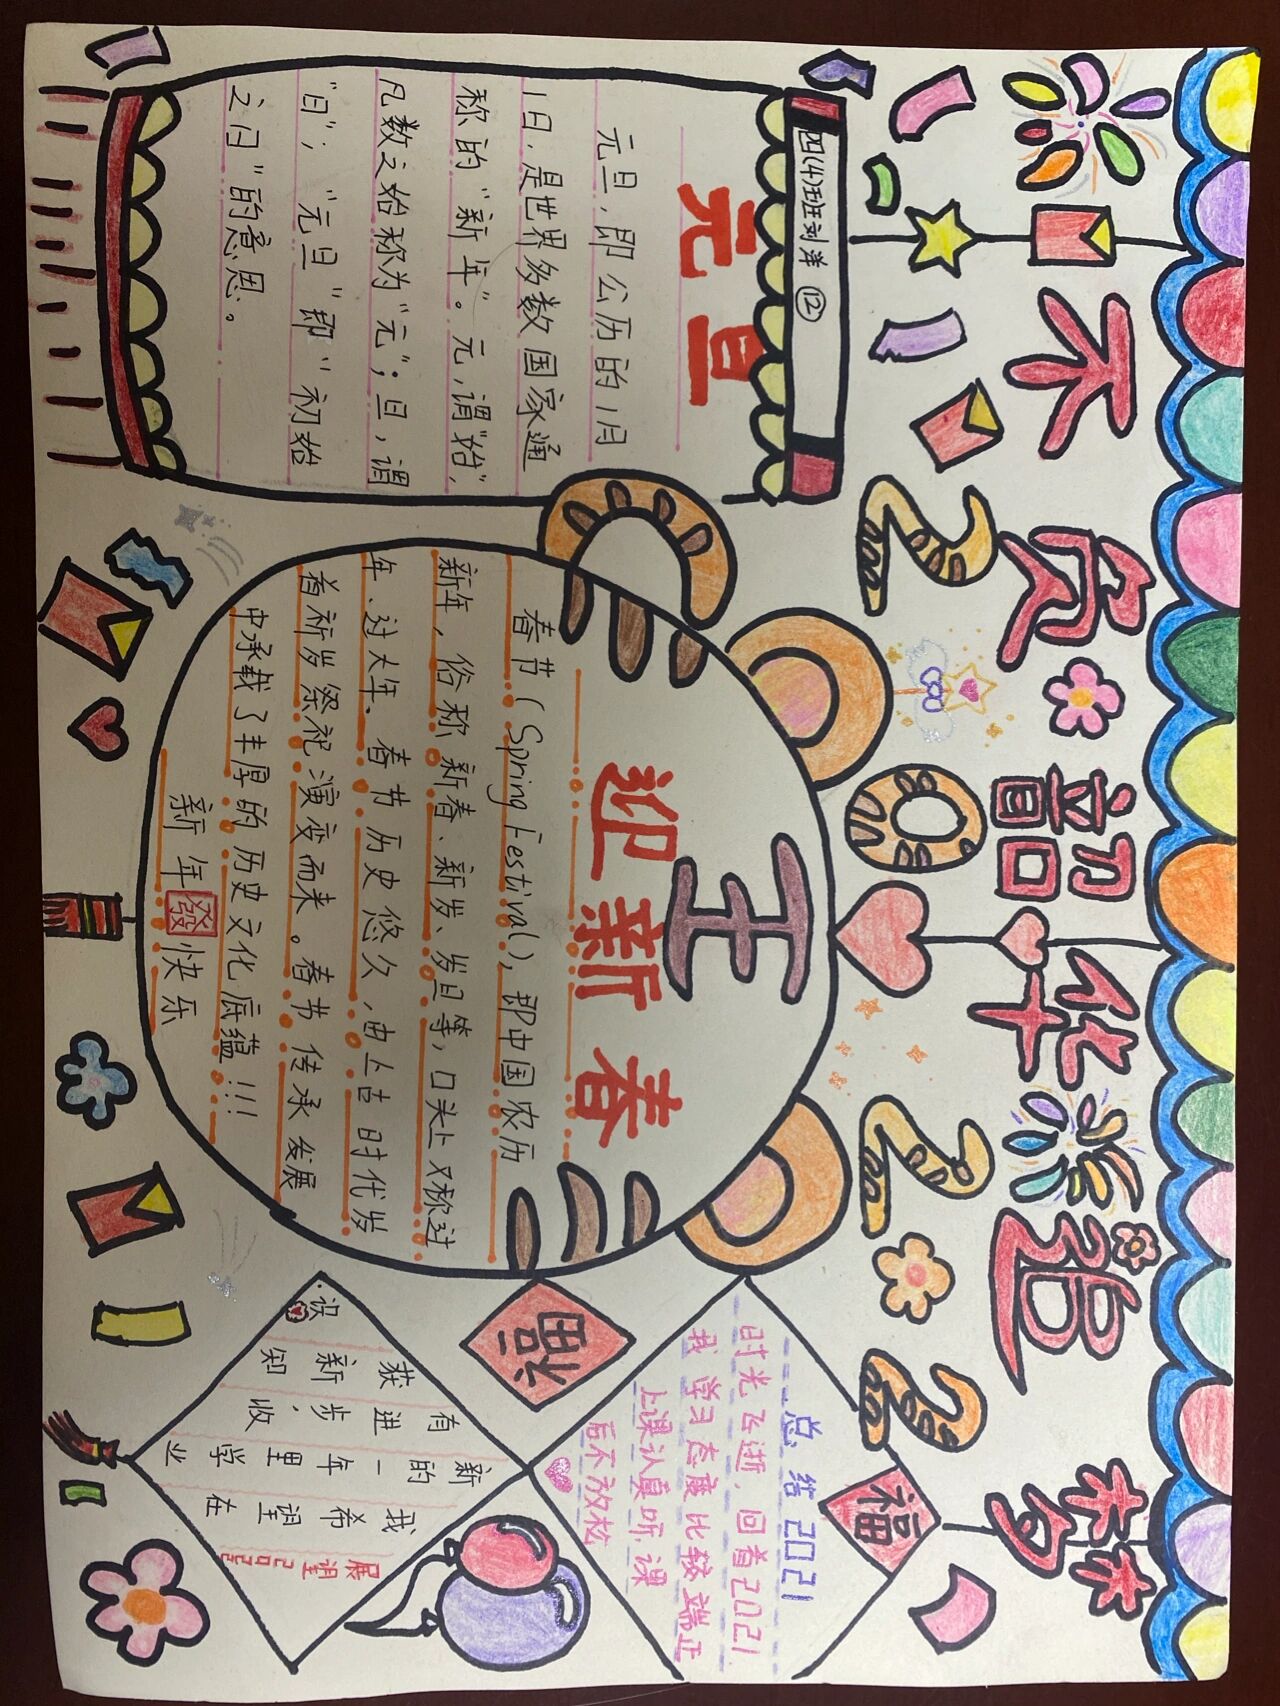 不负韶华 追梦
2022
四(4)班刘洋 ⑫
元旦
元旦,即公历的1月
1日,是世界多数国家通
称的“新年”。元,谓“始”,
凡数之始称为“元”;旦,谓
“日”;“元旦”即“初始
之日”的意思。
王
迎新春
春节(Spring Festival),即中国农历
新年,俗称新春、新岁、岁旦等,口头上又称过
年、过大年、春节历史悠久,由上古时代岁
首祈岁祭祀演变而来。春节传承发展
中承载了丰厚的历史文化底蕴!!!
新年發快乐
福
福
总结2021
时光飞逝,回看2021
我学习态度比较端正
上课认真听课
后不放松
展望2022
我希望在
新的一年里学业
有进步,收
获新知
识.